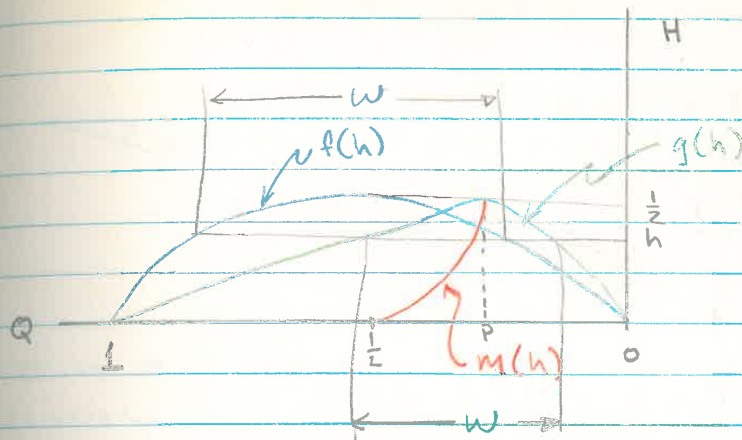 H
w
f(h)
g(h)
1/2
h
Q
1
1/2
P
m(h)
0
w